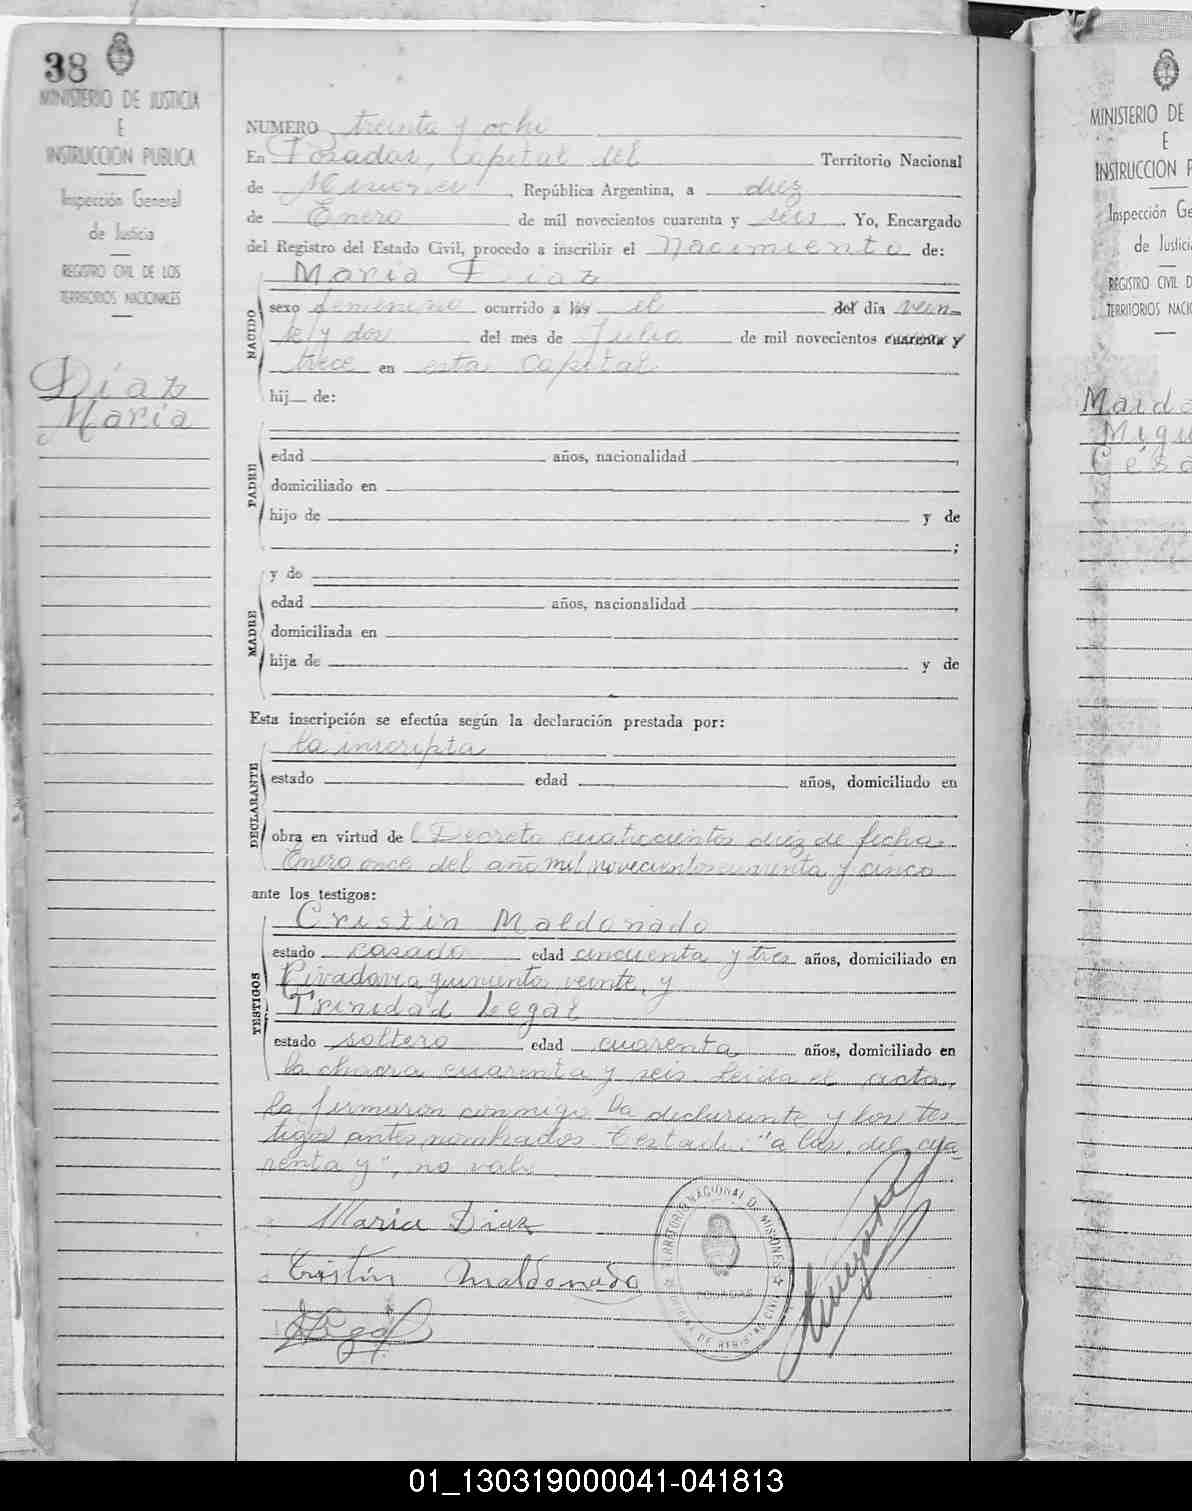 38
MINISTERIO DE JUSTICIA
E
INSTRUCCION PUBLICA
Inspección General
de Justicia
REGISTRO CIVIL DE LOS
TERRITORIOS NACIONALES
Díaz
María
NUMERO treinta y ocho
En Posadas, Capital del Territorio Nacional
de Misiones, República Argentina, a diez
de Enero de mil novecientos cuarenta y seis. Yo, Encargado
del Registro del Estado Civil, procedo a inscribir el Nacimiento de:
NACIDO
María Díaz
sexo femenino ocurrido a las el del día vein-
te y dos del mes de Julio de mil novecientos cuarenta y
trece en esta Capital
hij de:
PADRE
edad años, nacionalidad ,
domiciliado en
hijo de y de
;
MADRE
y de
edad años, nacionalidad ,
domiciliada en
hija de y de
Esta inscripción se efectúa según la declaración prestada por:
DECLARANTE
la inscripta
estado edad años, domiciliado en
obra en virtud de Decreto cuatrocientos diez de fecha
Enero once del año mil novecientos cuarenta y cinco
ante los testigos:
TESTIGOS
Cristin Maldonado
estado casado edad cincuenta y tres años, domiciliado en
Rivadavia quinientos veinte, y
Trinidad Legal
estado soltero edad cuarenta años, domiciliado en
la chacra cuarenta y seis. Leida el acta,
la firmaron conmigo la declarante y los tes-
tigos antes nombrados. Testado: "a las, del, cua-
renta y", no vale
María Diaz
Cristín Maldonado
TLegal
TERRITORIO NACIONAL DE MISIONES
POSADAS
MINISTERIO DE
E
INSTRUCCION P
Inspección Ge
de Justici
REGISTRO CIVIL D
TERRITORIOS NACI
Maido
Migu
Césa
01_130319000041-041813